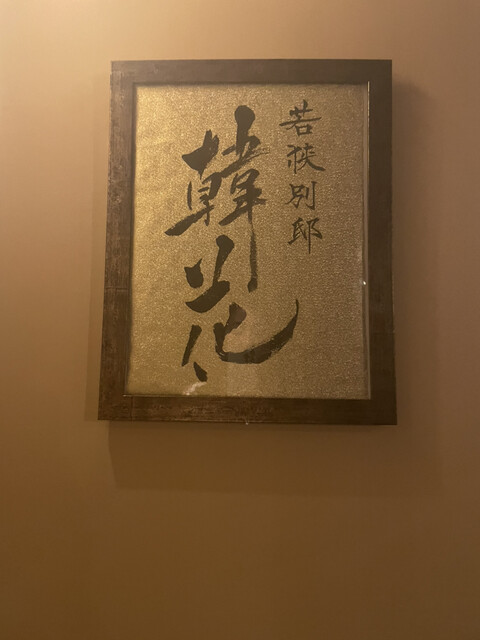 若狭別邸
韓花